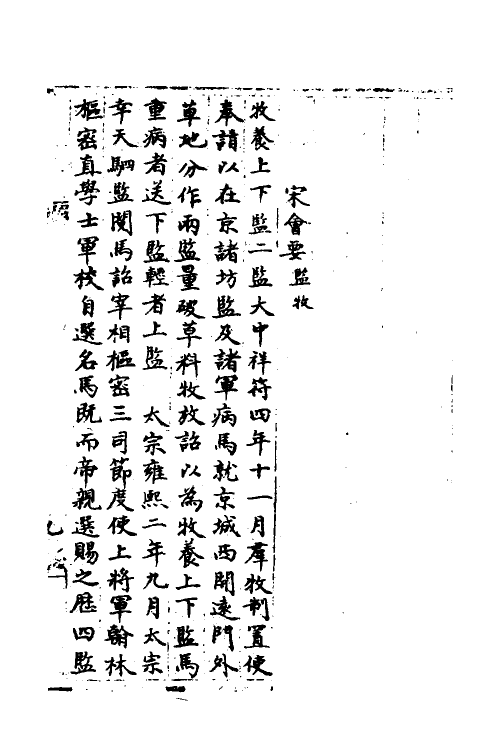 宋會要 監牧
牧養上下監二監大中祥符四年十一月羣牧制置使
奉請以在京諸坊監及諸軍病馬就京城西開遠門外
草地分作兩監量破草料牧放詔以為牧養上下監馬
重病者送下監輕者上監 太宗雍熙二年九月太宗
幸天駟監閱馬詔宰相樞密三司節度使上將軍翰林
樞密直學士軍校自選名馬既而帝親選賜之歷四監